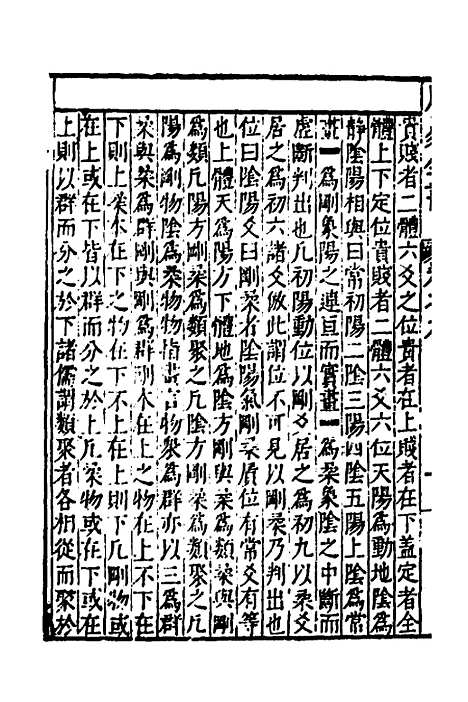 貴賤者二體六爻之位貴者在上賤者在下蓋定者全
體上下定位貴賤者二體六爻六位天陽爲動地陰爲
靜陰陽相與曰常初陽二陰三陽四陰五陽上陰爲常
畫一爲剛象陽之連亘而實畫一爲柔象陰之中斷而
虛斷判出也凡初陽動位以剛爻居之爲初九以柔爻
居之爲初六諸爻倣此謂位不可見以剛柔乃判出也
位曰陰陽爻曰剛柔者陰陽氣剛柔質位有常爻有等
也上體天爲陽方下體地爲陰方剛與柔爲類柔與剛
爲類凡陽方剛柔爲類聚之凡陰方剛柔爲類聚之凡
陽爲剛物陰爲柔物物皆畫言物象爲群亦以三爲群
柔與柔爲群剛與剛爲群剛本在上之物在上不下在
下則上柔本在下之物在下不上在上則下凡剛物或
在上或在下皆以群而分之於上凡柔物或在下或在
上則以群而分之於下諸儒謂類聚者各相從而聚於